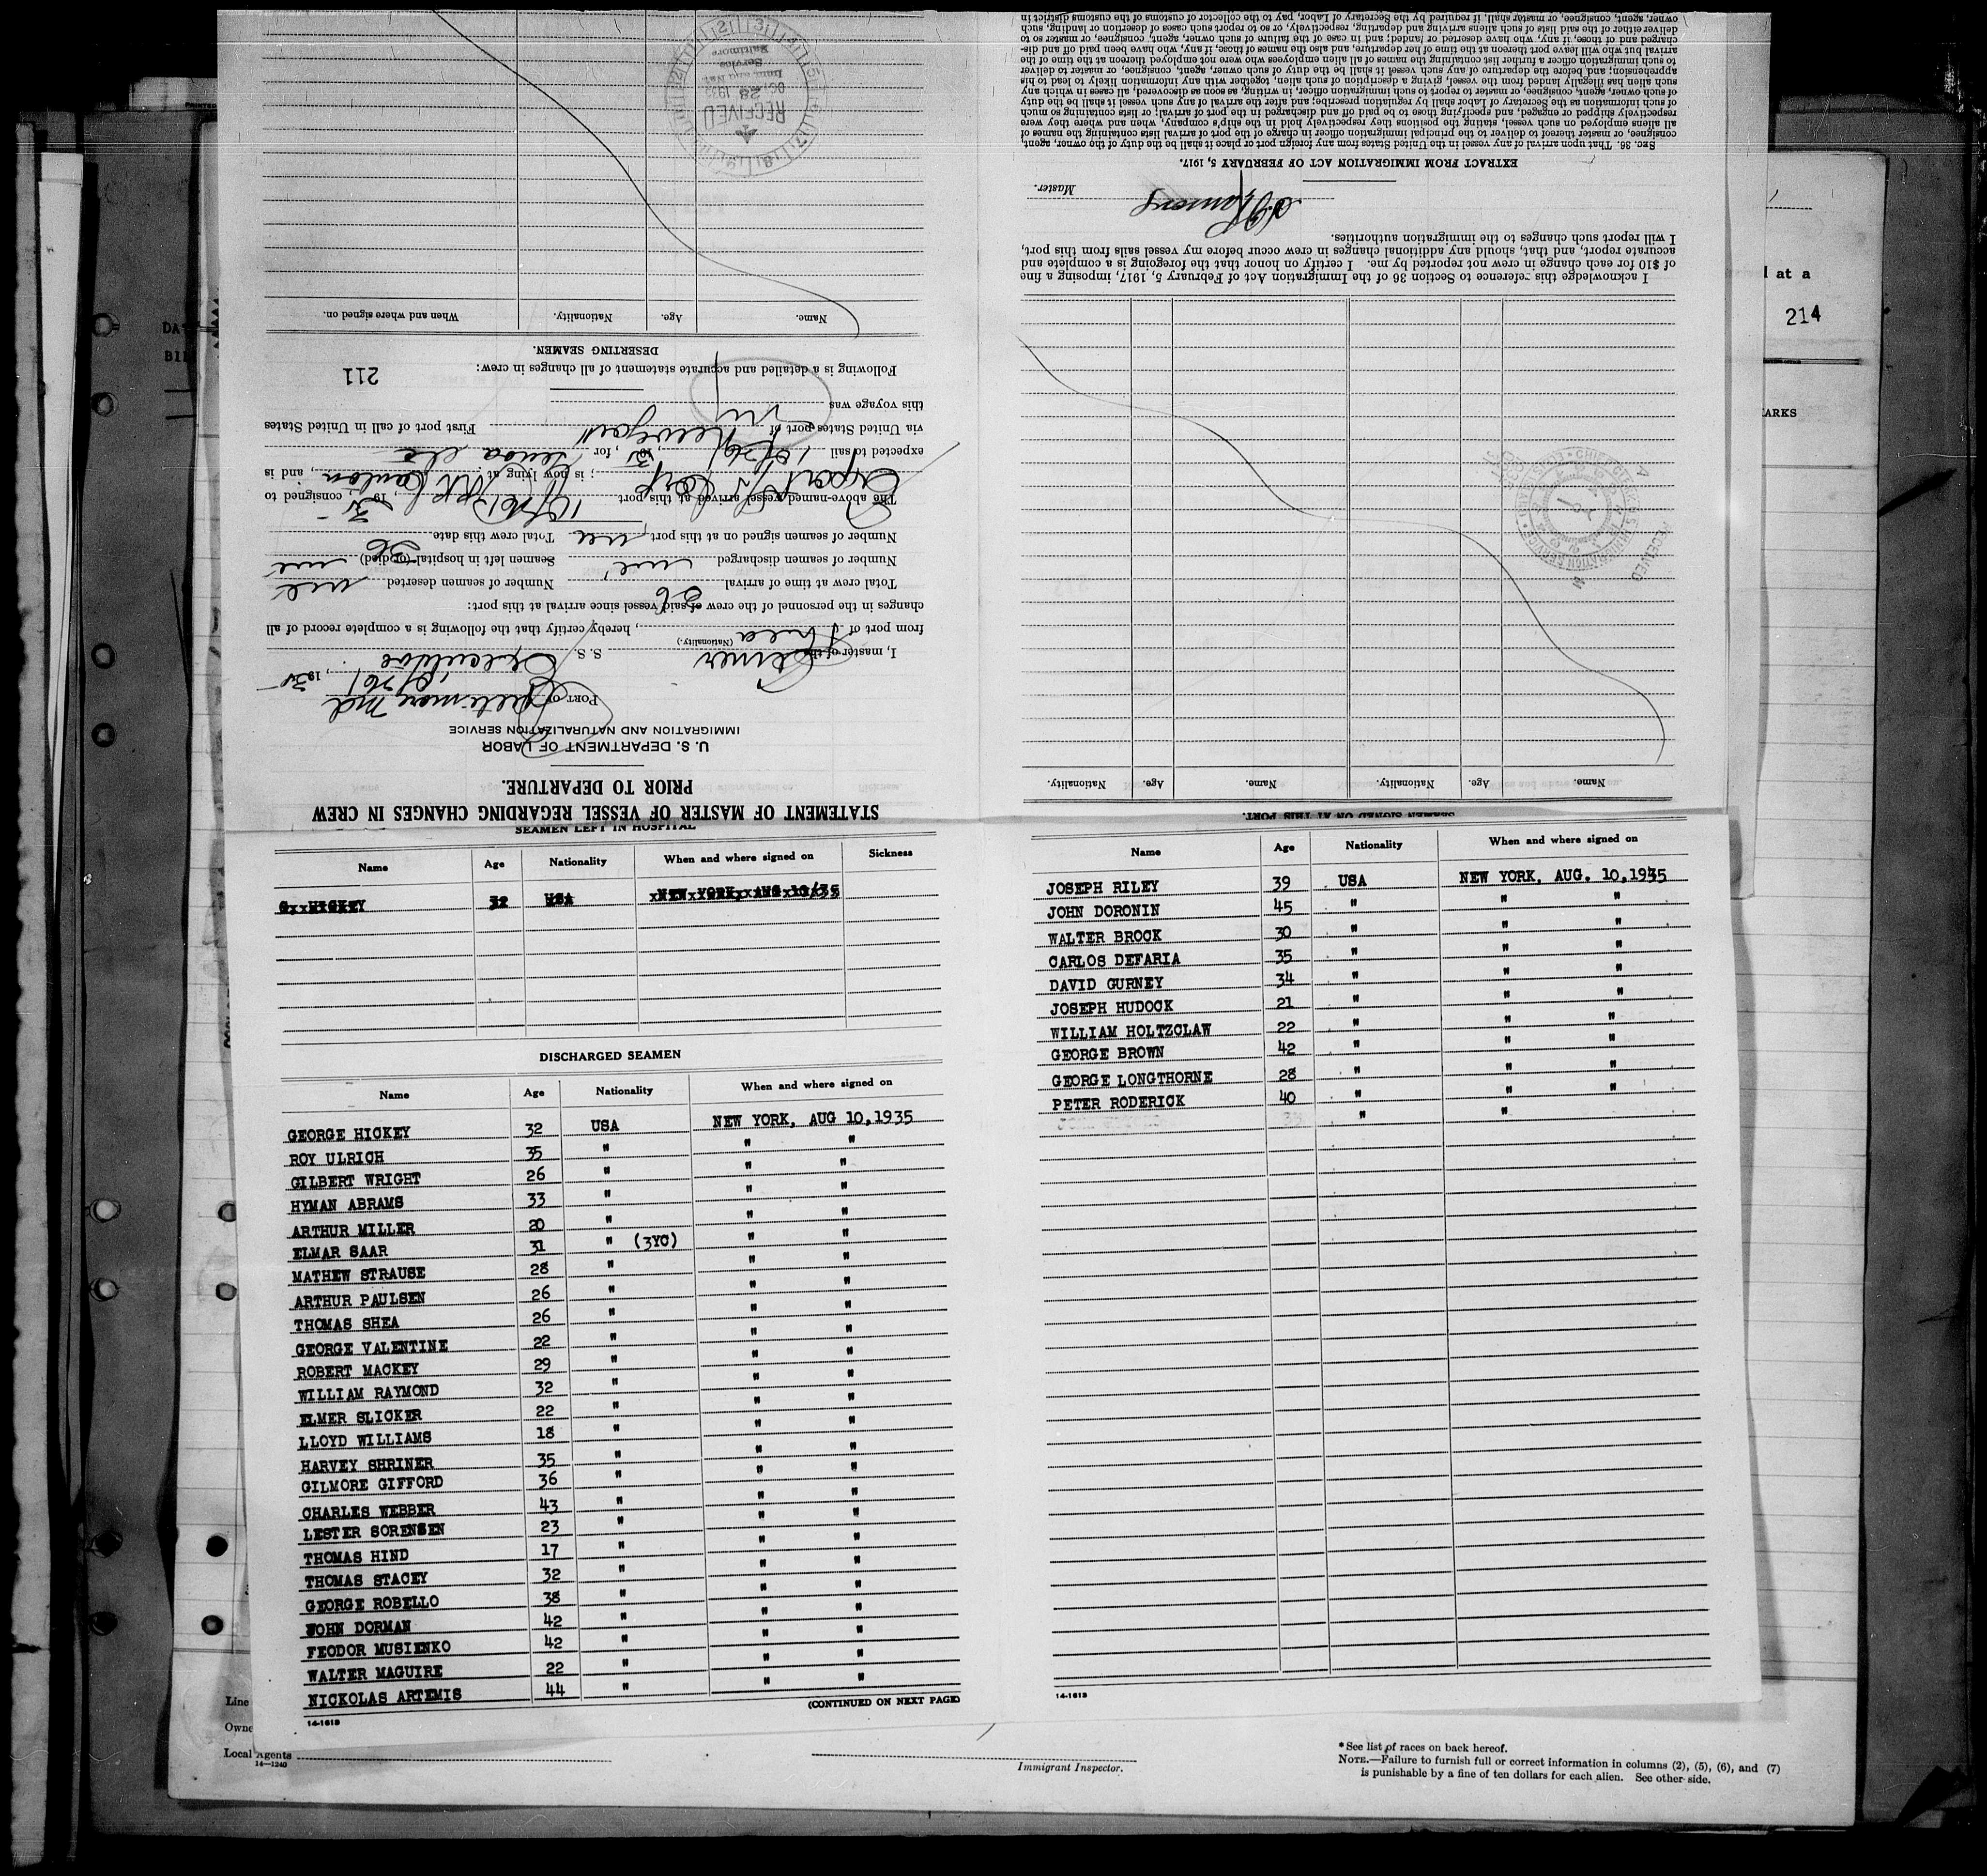 STATEMENT OF MASTER OF VESSEL REGARDING CHANGES IN CREW
PRIOR TO DEPARTURE.
U. S. DEPARTMENT OF LABOR
IMMIGRATION AND NATURALIZATION SERVICE
PORT OF Baltimore Md
10/26/, 1935
I, master of the S. S.
(Nationality.)
from port of, hereby certify that the following is a complete record of all
changes in the personnel of the crew of said vessel since arrival at this port:
Total crew at time of arrival 36 Number of seamen deserted
Number of seamen discharged Seamen left in hospital (or died)
Number of seamen signed on at this port Total crew this date 36
The above-named vessel arrived at this port, 1935, consigned to
Export S/S Corp; is now lying at Canton, and is
expected to sail 10/26/, 1935, for Genoa
via United States port of First port of call in United States
this voyage was
Following is a detailed and accurate statement of all changes in crew:
211
DESERTING SEAMEN.
Name. Age. Nationality. When and where signed on.
RECEIVED
28
Imm. and Nat.
Service
Baltimore
SEAMEN SIGNED ON AT THIS PORT.
Name. Age. Nationality. Name. Age. Nationality.
I acknowledge this reference to Section 36 of the Immigration Act of February 5, 1917, imposing a fine
of $10 for each change in crew not reported by me. I certify on honor that the foregoing is a complete and
accurate report, and that, should any additional changes in crew occur before my vessel sails from this port,
I will report such changes to the immigration authorities.
Master.
EXTRACT FROM IMMIGRATION ACT OF FEBRUARY 5, 1917.
SEC. 36. That upon arrival of any vessel in the United States from any foreign port or place it shall be the duty of the owner, agent,
consignee, or master thereof to deliver to the principal immigration officer in charge of the port of arrival lists containing the names of
all aliens employed on such vessel, stating the positions they respectively hold in the ship's company, when and where they were
respectively shipped or engaged, and specifying those to be paid off and discharged in the port of arrival; or lists containing so much
of such information as the Secretary of Labor shall by regulation prescribe; and after the arrival of any such vessel it shall be the duty
of such owner, agent, consignee, or master to report to such immigration officer, in writing, as soon as discovered, all cases in which any
such alien has illegally landed from the vessel, giving a description of such alien, together with any information likely to lead to his
apprehension; and before the departure of any such vessel it shall be the duty of such owner, agent, consignee, or master to deliver
to such immigration officer a further list containing the names of all alien employees who were not employed thereon at the time of the
arrival but who will leave port thereon at the time of her departure, and also the names of those, if any, who have been paid off and dis-
charged and of those, if any, who have deserted or landed; and in case of the failure of such owner, agent, consignee, or master so to
deliver either of the said lists of such aliens arriving and departing, respectively, or so to report such cases of desertion or landing, such
owner, agent, consignee, or master shall, if required by the Secretary of Labor, pay to the collector of customs of the customs district in
RECEIVED
SEAMEN LEFT IN HOSPITAL
Name Age Nationality When and where signed on Sickness
HICKEY 32 USA NEW YORK, AUG 10/35
DISCHARGED SEAMEN
Name Age Nationality When and where signed on
GEORGE HICKEY 32 USA NEW YORK, AUG 10,1935
ROY ULRICH 35 " " "
GILBERT WRIGHT 26 " " "
HYMAN ABRAMS 33 " " "
ARTHUR MILLER 20 " " "
ELMAR SAAR 31 " (3YC) " "
MATHEW STRAUSE 28 " " "
ARTHUR PAULSEN 26 " " "
THOMAS SHEA 26 " " "
GEORGE VALENTINE 22 " " "
ROBERT MACKEY 29 " " "
WILLIAM RAYMOND 32 " " "
ELMER SLICKER 22 " " "
LLOYD WILLIAMS 18 " " "
HARVEY SHRINER 35 " " "
GILMORE GIFFORD 36 " " "
CHARLES WEBBER 43 " " "
LESTER SORENSEN 23 " " "
THOMAS HIND 17 " " "
THOMAS STACEY 32 " " "
GEORGE ROBELLO 38 " " "
JOHN DORMAN 42 " " "
FEODOR MUSIENKO 42 " " "
WALTER MAGUIRE 22 " " "
NICKOLAS ARTEMIS 44 " " "
(CONTINUED ON NEXT PAGE)
14-1618
Name Age Nationality When and where signed on
JOSEPH RILEY 39 USA NEW YORK, AUG. 10,1935
JOHN DORONIN 45 " " "
WALTER BROCK 30 " " "
CARLOS DEFARIA 35 " " "
DAVID GURNEY 34 " " "
JOSEPH HUDOCK 21 " " "
WILLIAM HOLTZCLAW 22 " " "
GEORGE BROWN 42 " " "
GEORGE LONGTHORNE 28 " " "
PETER RODERICK 40 " " "
" "
14-1618
at a
214
ARKS
Line
Owne
Local Agents
14—1240
Immigrant Inspector.
* See list of races on back hereof.
NOTE.—Failure to furnish full or correct information in columns (2), (5), (6), and (7)
is punishable by a fine of ten dollars for each alien. See other side.